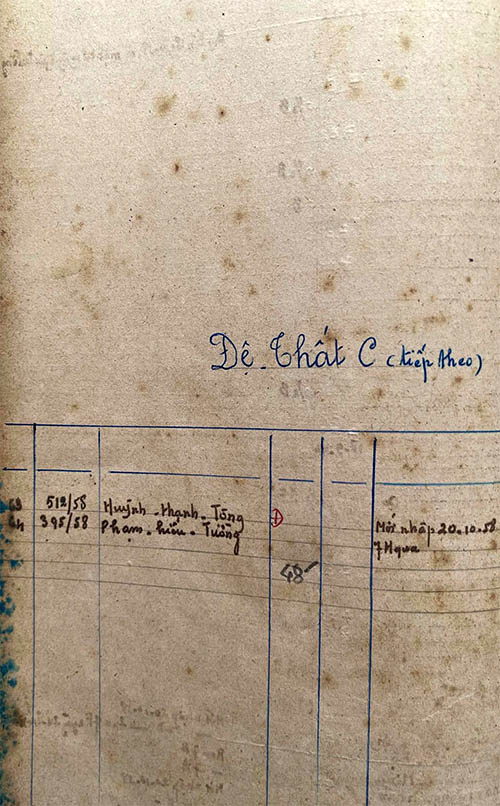 Đệ Thất C (tiếp theo)
63 512/58 Huỳnh-Thạnh-Tòng D
64 395/58 Phạm-hiếu-Tường Mới nhập 20-10-58
48